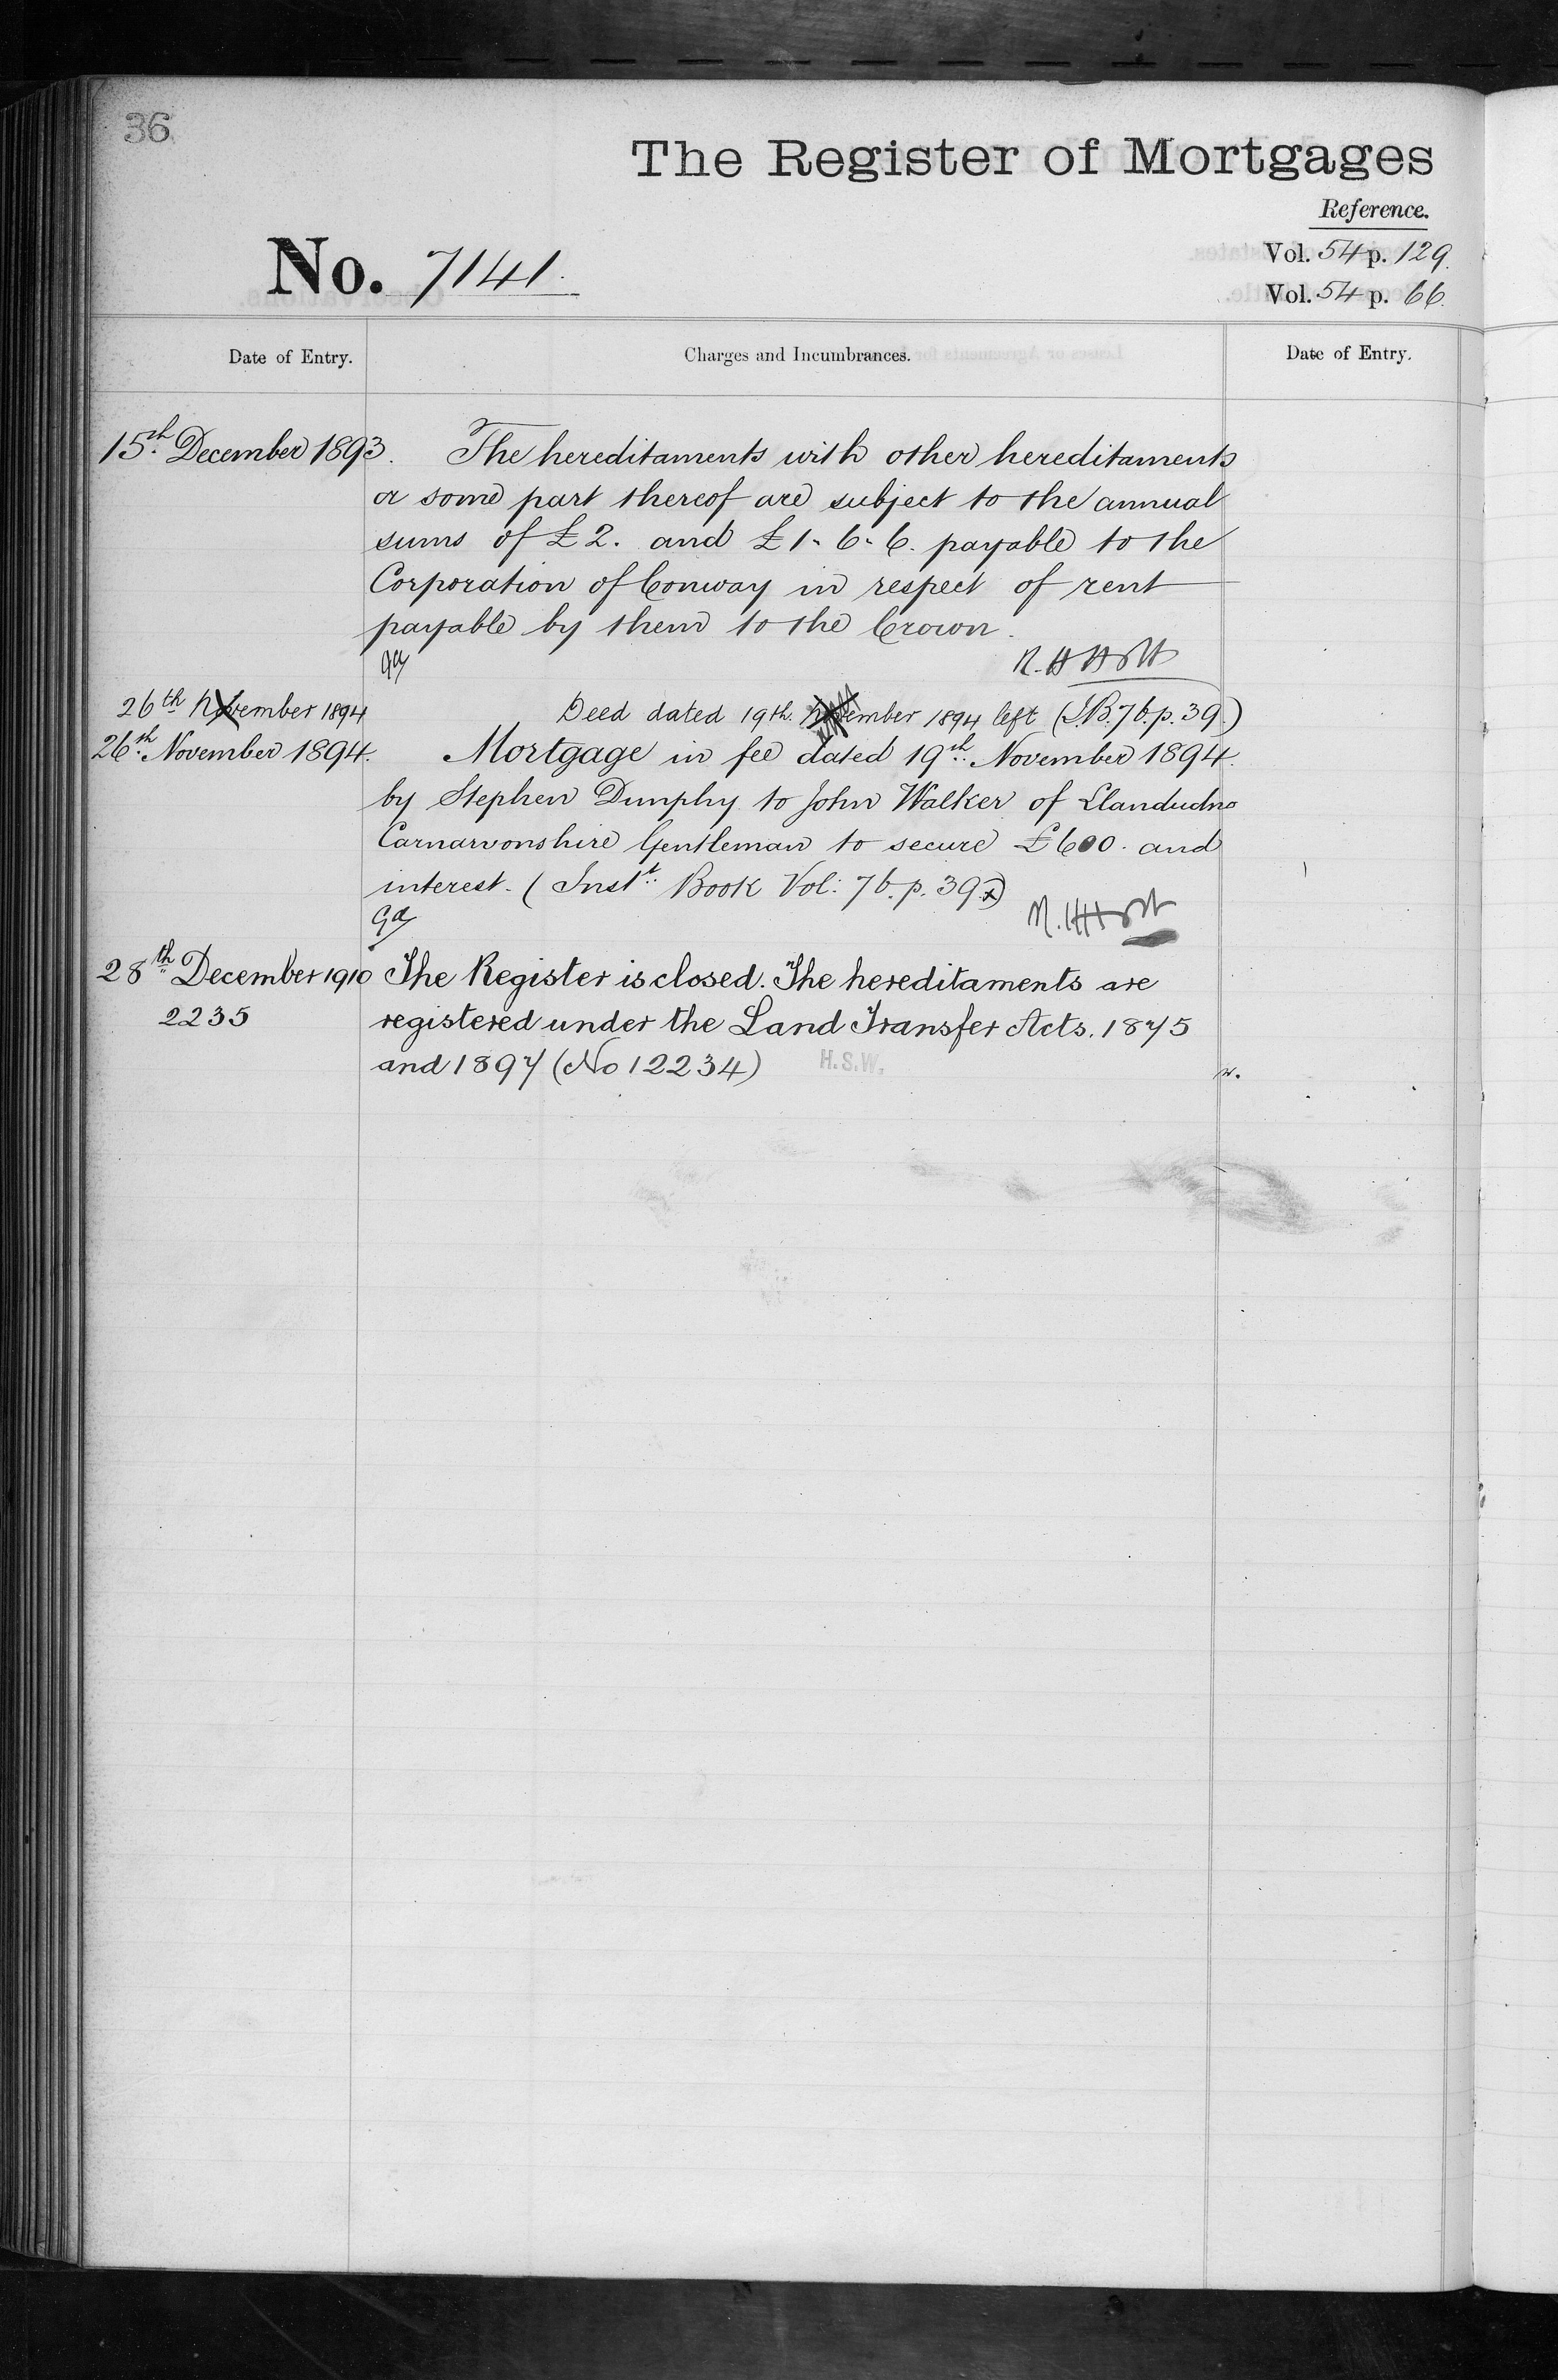 36
The Register of Mortgages
Reference.
No. 7141.
Vol. 54 p. 129.
Vol. 54 p. 66.
Date of Entry.
Charges and Incumbrances.
Date of Entry.
15th December 1893.
The hereditaments with other hereditaments
or some part thereof are subject to the annual
sums of £2. and £1-6-6. payable to the
Corporation of Conway in respect of rent
payable by them to the Crown.
26th November 1894
Deed dated 19th November 1894 left (I.B. 76. p. 39.)
26th November 1894.
Mortgage in fee dated 19th November 1894.
by Stephen Dunphy to John Walker of Llandudno
Carnarvonshire Gentleman to secure £600. and
interest. (Inst. Book Vol: 76. p. 39.)
28th December 1910
The Register is closed. The hereditaments are
2235
registered under the Land Transfer Acts. 1875
and 1897 (No 12234)
H.S.W.